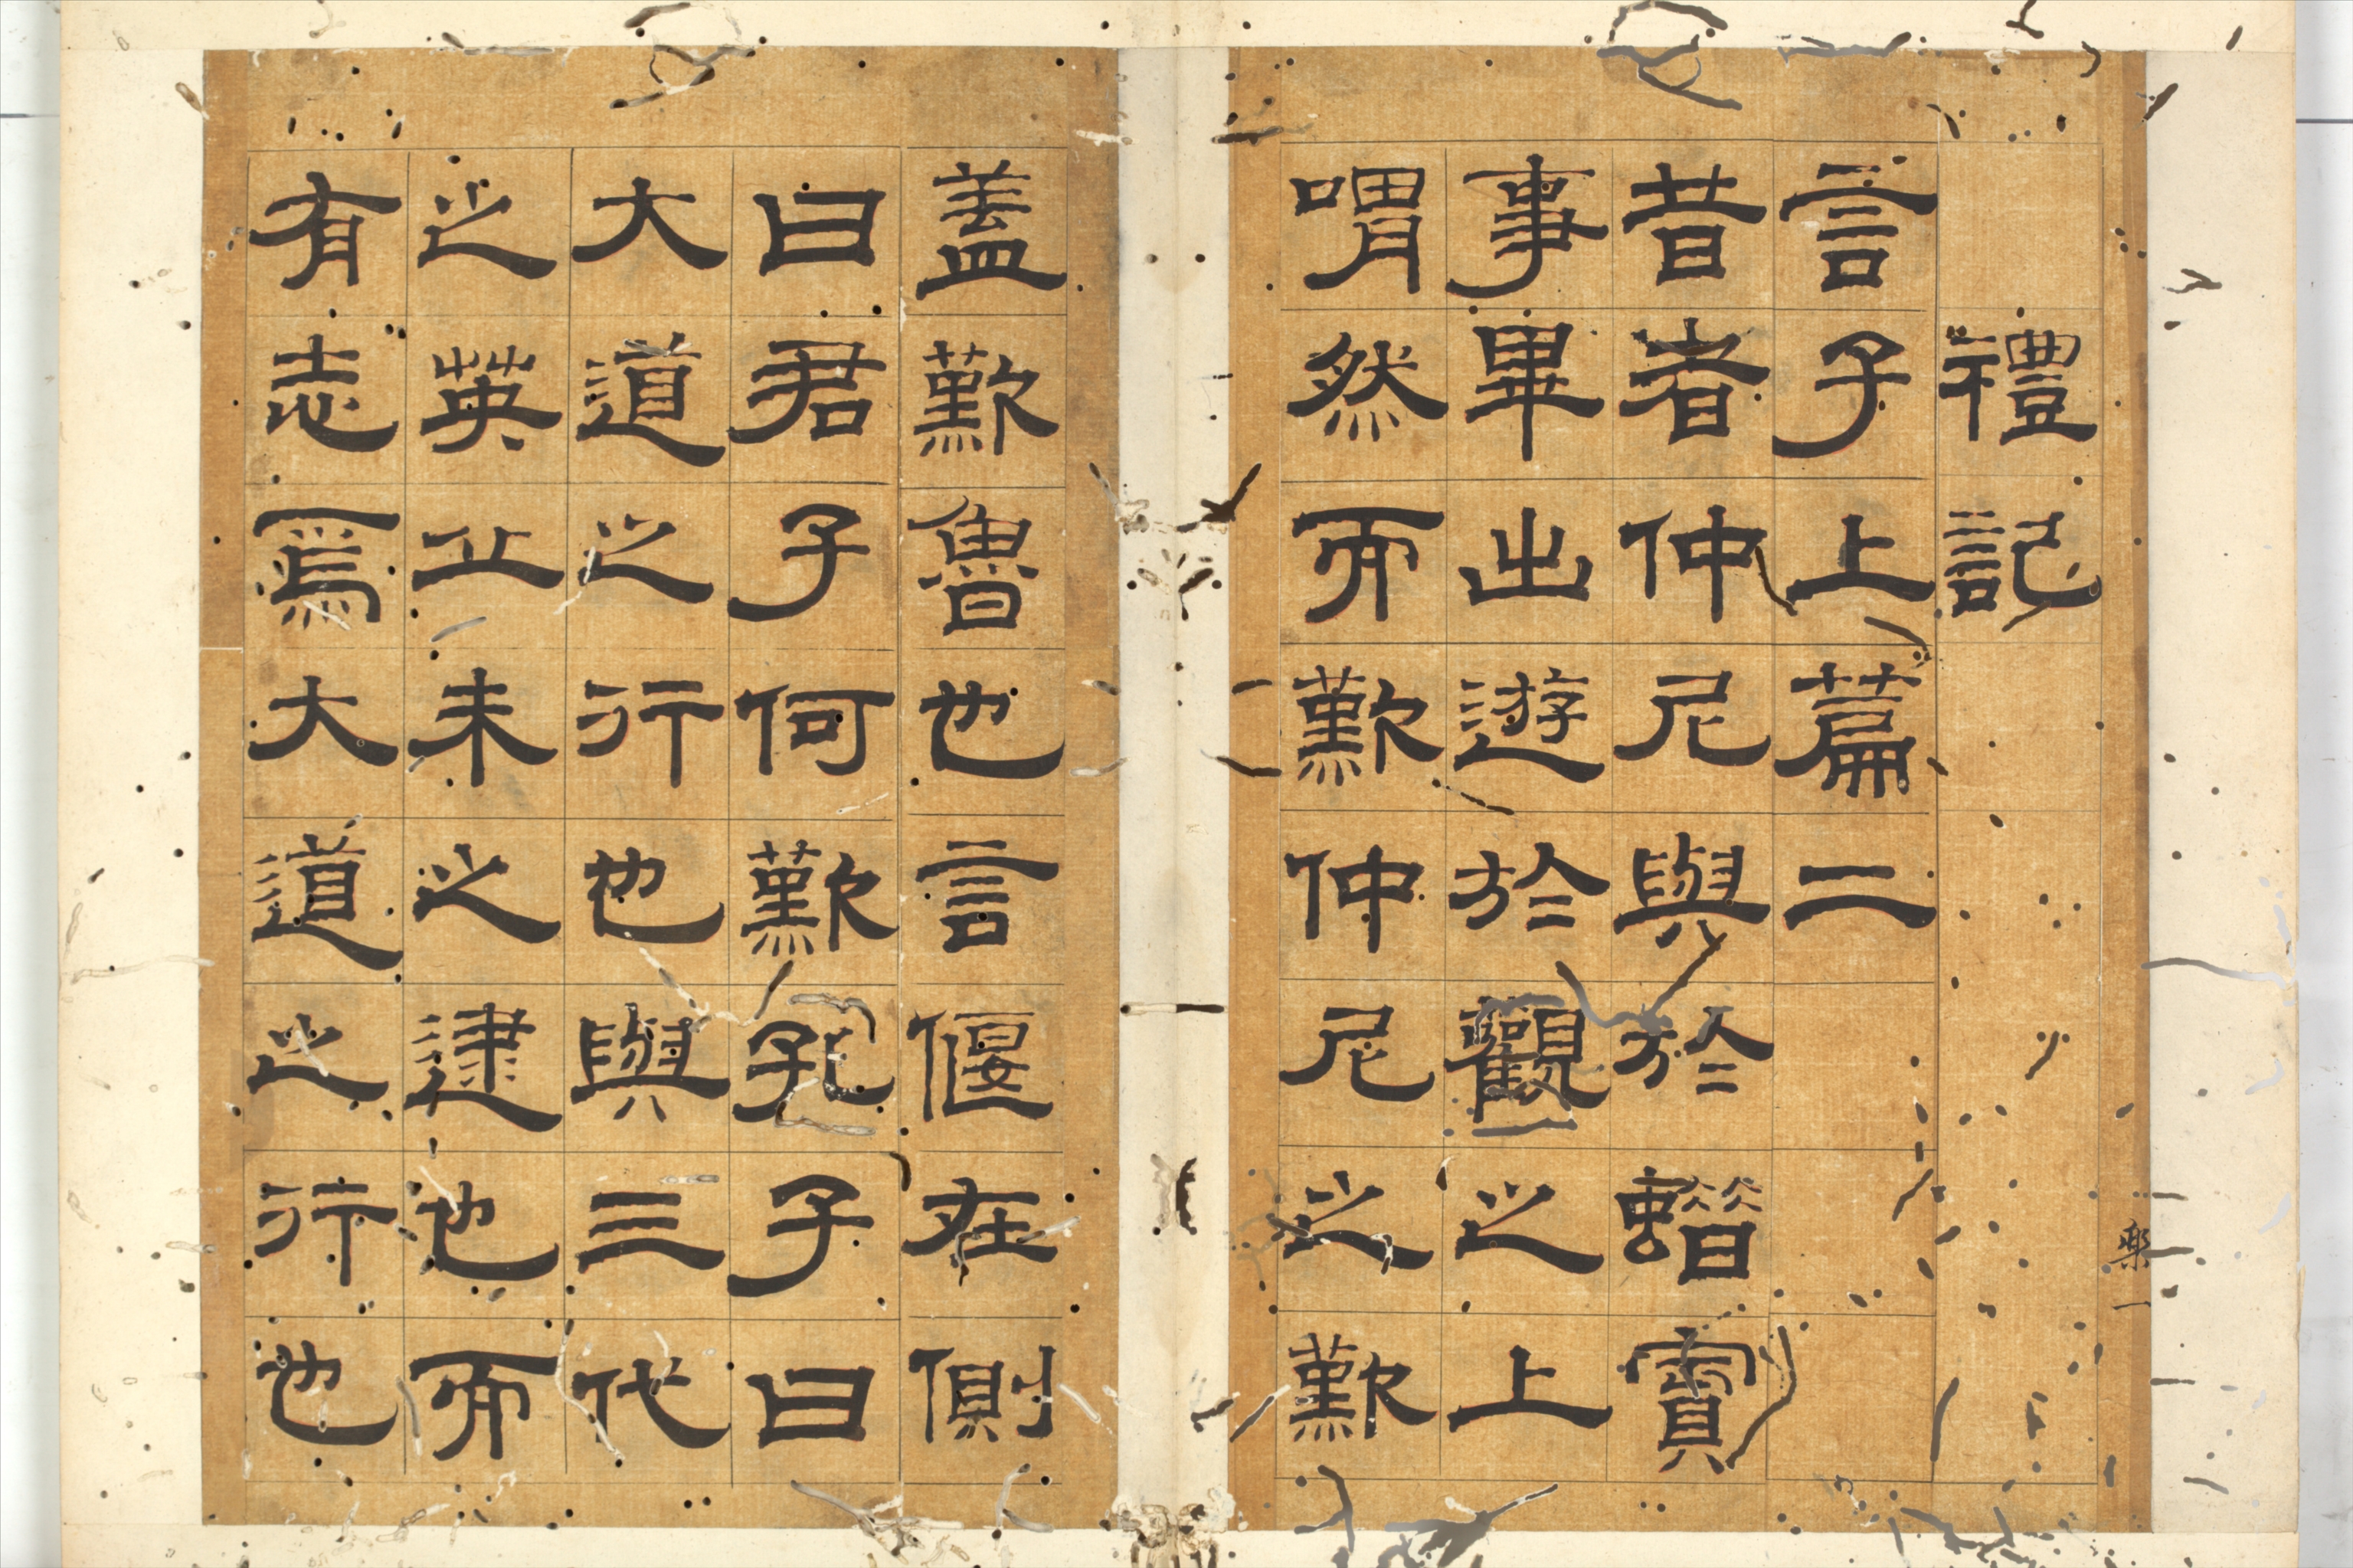 禮記
言子上篇二
昔者仲尼與於蜡賓
事畢出遊於觀之上
喟然而歎仲尼之歎
樂一
蓋歎魯也言偃在側
曰君子何歎孔子曰
大道之行也與三代
之英丘未之逮也而
有志焉大道之行也